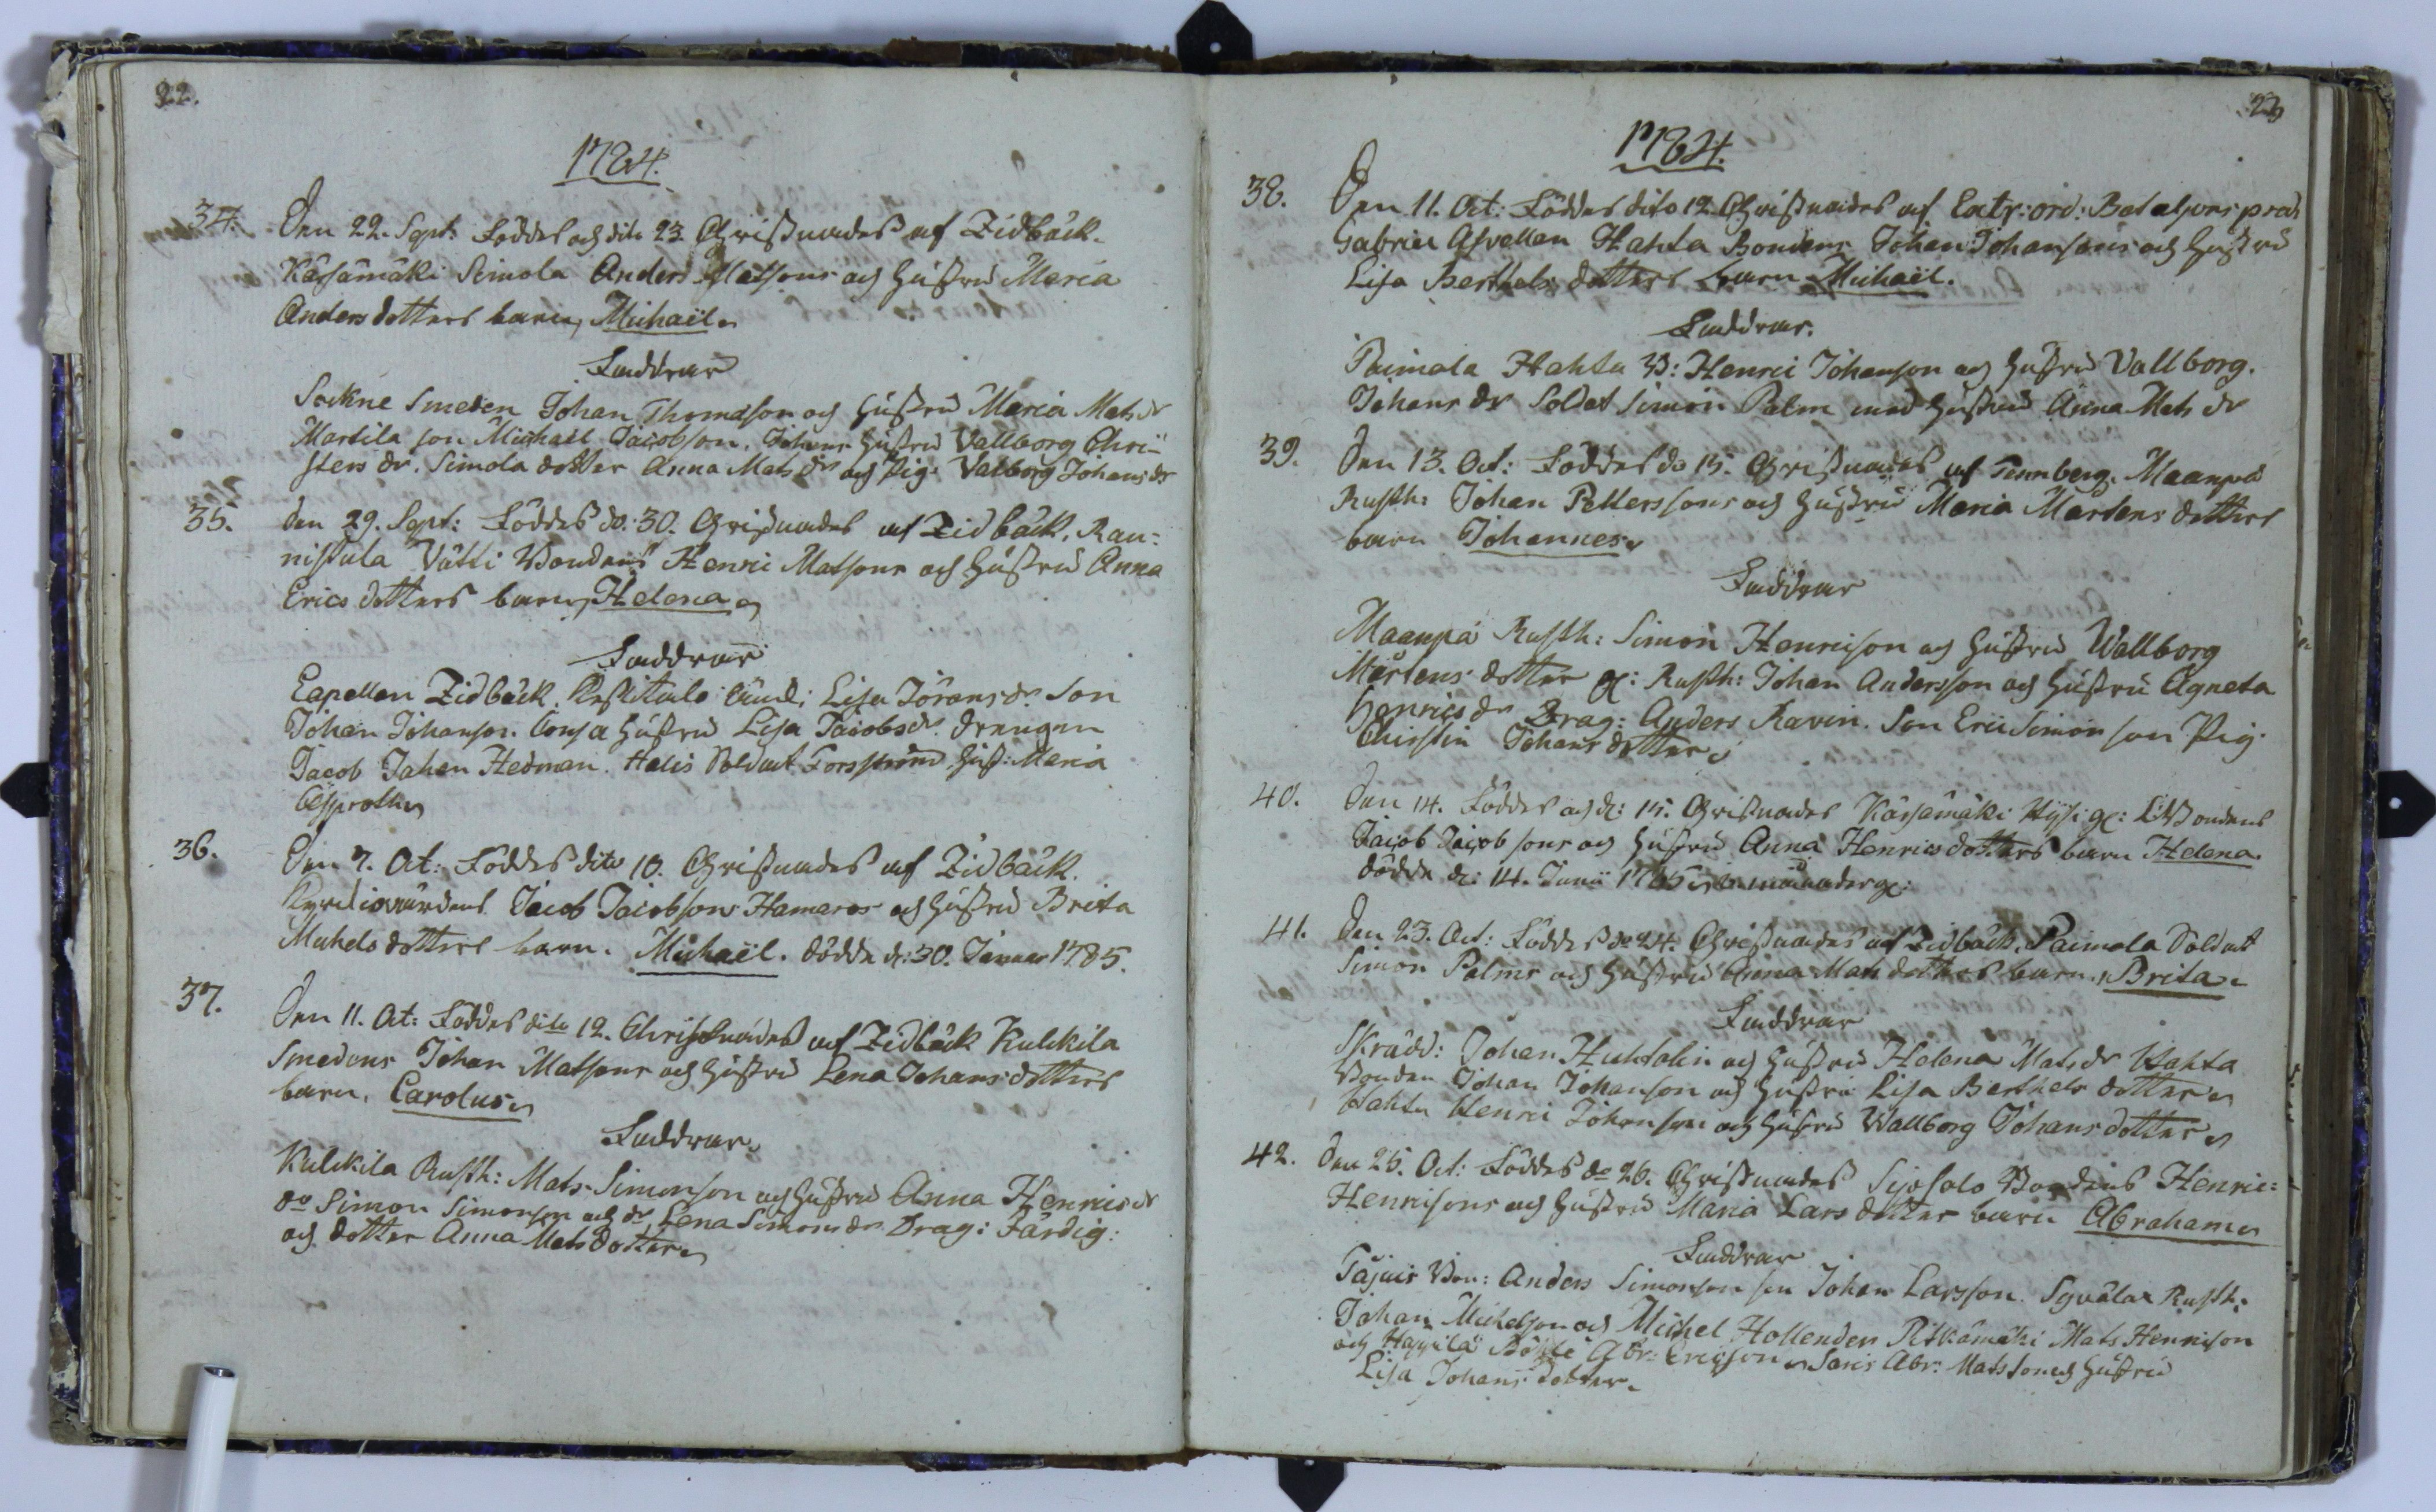 22.
1784.
34. Den 22. Sept: Föddes och dito 23 Christnades af Zidbäck.
Kärsämäki Simola Anders Matsons och hustru Maria
Andersdotters barn, Michaël.
Faddrar
Sockne Smeden Johan Thomasson och hustru Maria Mats dr
Martila son Michaël Jacobson. Johans hustru Vallborg Chri-
sters dr. Simola dotter Anna Mats dr och Pig. Valborg Johans dr
35. Den 29. Sept: Föddes do. 30. Christnades af Zidbäck. Rau-
nistula Vätti Bondens Henric Matsons och hustru Anna
Erics dotters barn, Helena
Faddrar
Capellan Zidbäck. Lisa Jörans dr Son
Johan Johanson. hustru Lisa Jacobs dr. drengen
Jacob Johan Hedman. Halis Soldat Forsström hust: Maria
Asproth
36. Den 7. Oct: Föddes dito 10. Christnades af Zidbäck.
Jacob Jacobsons Hamaros och hustru Brita
Michels dotters barn. Michaël. dödde d: 30. Januar 1785.
37. Den 11. Oct: Föddes dito 12. Christnades af Zidbäck Kulckila
Smedens Johan Matsons och hustru Lena Johans dotters
barn. Carolus
Faddrar
Kulckila Rusth: Mats Simonson och hustru Anna Henrics dr
do Simon Simonson och dr Lena Simons dr Drag: Färdig:
och dotter Anna Mats dotter
23
1784.
38. Den 11. Oct: Föddes dito 12. Christnades af Extr: ord: Bataljons pred
Gabriel Asvellan Hahta Bondens Johan Johansons och hustru
Lisa Berthels dotters barn Michaël.
Faddrar.
Paimala Hahta B: Henric Johanson och hustru Vallborg.
Johans dr Soldat Simon Palm med hustru Anna Mats dr
39. Den 13. Oct: Föddes do 15. Christnades af Tennberg. Maanpä
Rusth: Johan Pettersons och hustru Maria Mårtens dotters
barn Johannes
Faddrar
Maanpä Rusth: Simon Henricson och hustru Wallborg
Mårtens dotter gl: Rusth: Johan Andersson och hustru Agneta
Henrics dr Drag: Anders Ravin. Son Eric Simon son Pig.
Christin Johans dotter
40. Den 14. Föddes och d: 15. Christnades Kärsämäki Hyysi gl: Bondens
Jacob Jacobsons och hustru Anna Henrics dotters barn Helena.
dödde d: 14. Junii 1785 månader gl:
41. Den 23. Oct: Föddes do 24. Christnades af Zidbäck. Paimala Soldat
Simon Palms och hustru Anna Mats dotters barn. Brita
Faddrar
Skrädd: Johan Huhtalin och hustru Helena Mats dr Hahta
Bonden Johan Johanson och hustru Lisa Berthels dotter
Hahta Henric Johanson och hustru Wallborg Johans dotter
42. Den 25. Oct: Föddes do 26. Christnades Sipsalo Bondens Henric
Henricsons och hustru Maria Lars dotter barn Abraham
Faddrar
Tajnis Bon: Anders Simonson son Johan Larsson. Syvälax Rusth:
Johan Michelson och Michel Hollender Pitkämäki Mats Henricson
och Happila Bölle Abr: Ericson Saris Abr: Matsson och hustru
Lisa Johans dotter